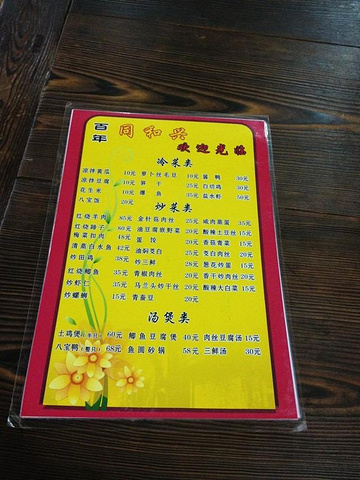 百年 同和兴
欢迎光临
冷菜类
凉拌黄瓜 10元 萝卜丝毛豆 10元 酱鸭 30元
凉拌豆腐 10元 笋干 25元 白切鸡 30元
花生米 10元 爆鱼 35元 盐水虾 50元
八宝饭 20元
炒菜类
红烧羊肉 85元 金针菇肉丝 25元 咸肉蒸蛋 35元
红烧蹄子 80元 油豆腐嵌野菜 20元 酸辣土豆丝 15元
梅菜扣肉 48元 蛋饺 20元 香菇青菜 15元
清蒸白水鱼 42元 油焖茭白 25元 茭白肉丝 20元
炒田鸡 38元 炒三鲜 28元 葱花炒蛋 15元
红烧鲫鱼 35元 青椒肉丝 20元 香干炒肉丝 20元
炒虾仁 35元 马兰头炒干丝 20元 酸辣大白菜 15元
炒螺蛳 15元 青蚕豆 20元
汤煲类
土鸡煲 60元 鲫鱼豆腐煲 40元 肉丝豆腐汤 15元
八宝鸭(整只) 68元 鱼圆砂锅 58元 三鲜汤 30元